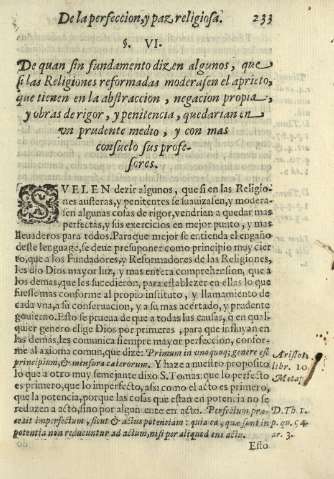 De la perfeccion, y paz religiosa. 233
§. VI.
De quan sin fundamento dizen algunos, que
si las Religiones reformadas moderasen el aprieto,
que tienen en la abstraccion, negacion propia,
y obras de rigor, y penitencia, quedarian en
vn prudente medio, y con mas
consuelo sus profe-
sores.
SVELEN dezir algunos, que si en las Religio-
nes austeras, y penitentes se suauizasen, y modera-
sen algunas cosas de rigor, vendrian a quedar mas
perfectas, y sus exercicios en mejor punto, y mas
lleuaderos para todos. Para que mejor se entienda el engaño
deste lenguage, se deue presuponer como principio muy cier
to, que a los Fundadores, y Reformadores de las Religiones,
les dio Dios mayor luz, y mas entera comprehension, que a
los demas, que les sucedieron, para establezer en ellas lo que
fuesse mas conforme al propio instituto, y llamamiento de
cada vna, a su conseruacion, y a su mas acertado, y prudente
gouierno. Esto se prueua de que a todas las causas, q̃ en qual
quier genero elige Dios por primeras, para que influyan en
las demàs, les comunica siempre mayor perfeccion, confor-
me al axioma comun, que dize: Primum in unoquoq; genere est
principium, & mensura cæterorum. Y haze a nuestro proposito
lo que a otro muy semejante dixo S. Tomas: que lo perfecto
es primero, que lo imperfecto, asi como el acto es primero,
que la potencia, porque las cosas que estàn en potencia no se
reduzen a acto, sino por algun ente en acto. Perfectum præ-
cedit imperfectum, sicut & actus potentiam: quia ea, quæ sunt in
potentia non reducuntur ad actum, nisi per aliquod ens actu.
Esto
Aristot.
libr. 10
Metaf.
D. Th. 1.
p. qu. 94.
ar. 3.